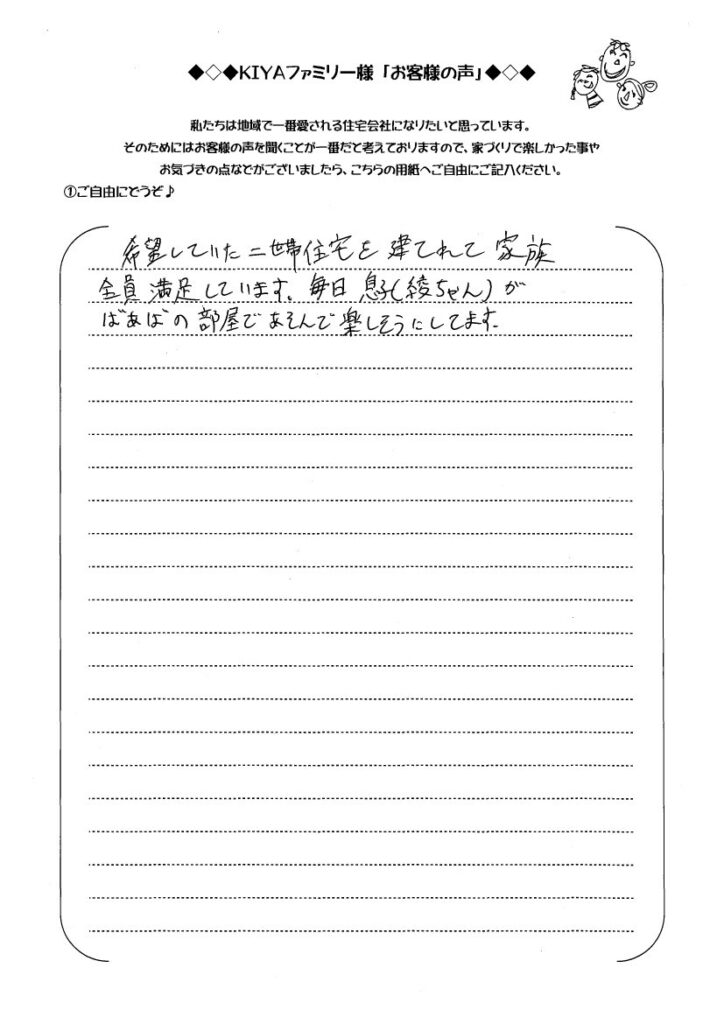 ◆◇◆KIYAファミリー様「お客様の声」◆◇◆
私たちは地域で一番愛される住宅会社になりたいと思っています。
そのためにはお客様の声を聞くことが一番だと考えておりますので、家づくりで楽しかった事や
お気づきの点などがございましたら、こちらの用紙へご自由にご記入ください。
①ご自由にどうぞ♪
希望していた二世帯住宅を建てれて家族
全員満足しています。毎日息子(綾ちゃん)が
ばあばの部屋であそんで楽しそうにしてます。